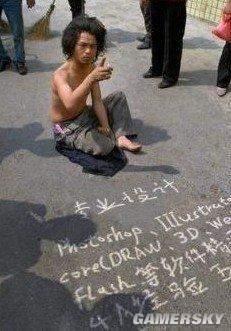 专业设计
Photoshop、Illustrato
corelDRAW、3D、We
Flash等软件精
GAMERSKY